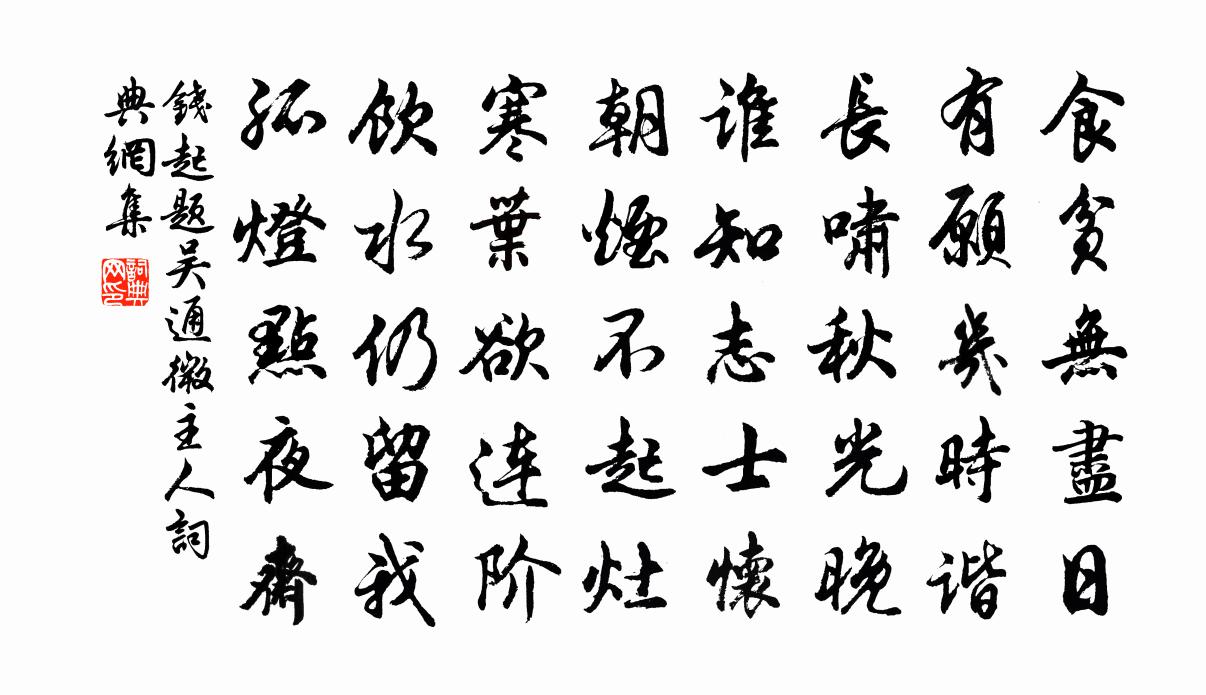 食贫無盡日
有願幾時谐
長啸秋光晚
谁知志士懷
朝煙不起灶
寒葉欲连阶
飲水仍留我
孤燈點夜齋
錢起题吴通微主人詞
典網集
詞典
网印